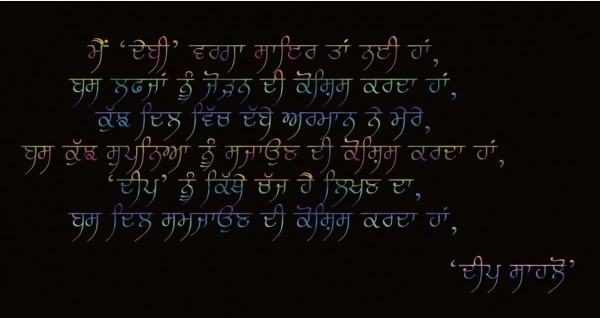 ਮੈਂ ‘ਦੇਬੀ’ ਵਰਗਾ ਸਾਇਰ ਤਾਂ ਨਈ ਹਾਂ,
ਬਸ ਲਫਜਾਂ ਨੂੰ ਜੋੜਨ ਦੀ ਕੋਸ਼ਿਸ ਕਰਦਾ ਹਾਂ,
ਕੁੱਝ ਦਿਲ ਵਿੱਚ ਦੱਬੇ ਅਰਮਾਨ ਨੇ ਮੇਰੇ,
ਬਸ ਕੁੱਝ ਸੁਪਨਿਆ ਨੂੰ ਸਜਾਉਣ ਦੀ ਕੋਸ਼ਿਸ ਕਰਦਾ ਹਾਂ,
‘ਦੀਪ’ ਨੂੰ ਕਿੱਥੇ ਚੱਜ ਹੈ ਲਿਖਣ ਦਾ,
ਬਸ ਦਿਲ ਸਮਜਾਉਣ ਦੀ ਕੋਸ਼ਿਸ ਕਰਦਾ ਹਾਂ,
‘ਦੀਪ ਸਾਹਲੋਂ’